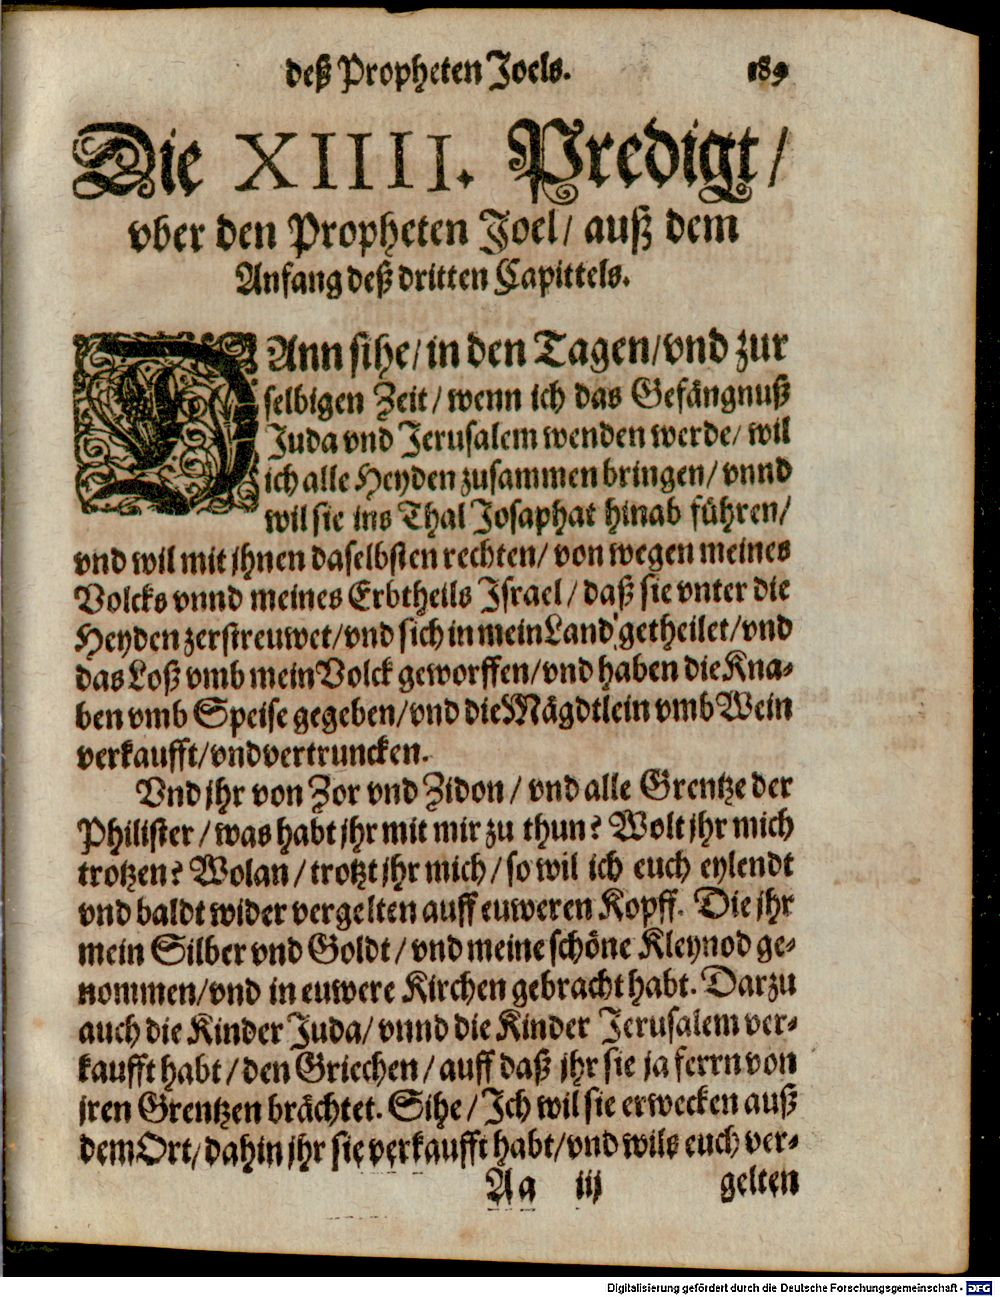 deß Propheten Joels. 189
Die XIIII. Predigt/
vber den Propheten Joel/ auß dem
Anfang deß dritten Capittels.
DAnn sihe/ in den Tagen/ vnd zur
selbigen Zeit/ wenn ich das Gefängnuß
Juda vnd Jerusalem wenden werde/ wil
ich alle Heyden zusammen bringen/ vnnd
wil sie ins Thal Josaphat hinab führen/
vnd wil mit jhnen daselbsten rechten/ von wegen meines
Volcks vnnd meines Erbtheils Israel/ daß sie vnter die
Heyden zerstreuwet/ vnd sich in mein Land getheilet/ vnd
das Loß vmb mein Volck geworffen/ vnd haben die Kna-
ben vmb Speise gegeben/ vnd die Mägdtlein vmb Wein
verkaufft/ vnd vertruncken.
Vnd jhr von Zor vnd Zidon/ vnd alle Grentze der
Philister/ was habt jhr mit mir zu thun? Wolt jhr mich
trotzen? Wolan/ trotzt jhr mich/ so wil ich euch eylendt
vnd baldt wider vergelten auff euweren Kopff. Die jhr
mein Silber vnd Goldt/ vnd meine schöne Kleynod ge-
nommen/ vnd in euwere Kirchen gebracht habt. Darzu
auch die Kinder Juda/ vnnd die Kinder Jerusalem ver-
kaufft habt/ den Griechen/ auff daß jhr sie ja ferrn von
jren Grentzen brächtet. Sihe/ Ich wil sie erwecken auß
dem Ort/ dahin jhr sie verkaufft habt/ vnd wils euch ver-
Aa iij gelten
Digitalisierung gefördert durch die Deutsche Forschungsgemeinschaft - DFG